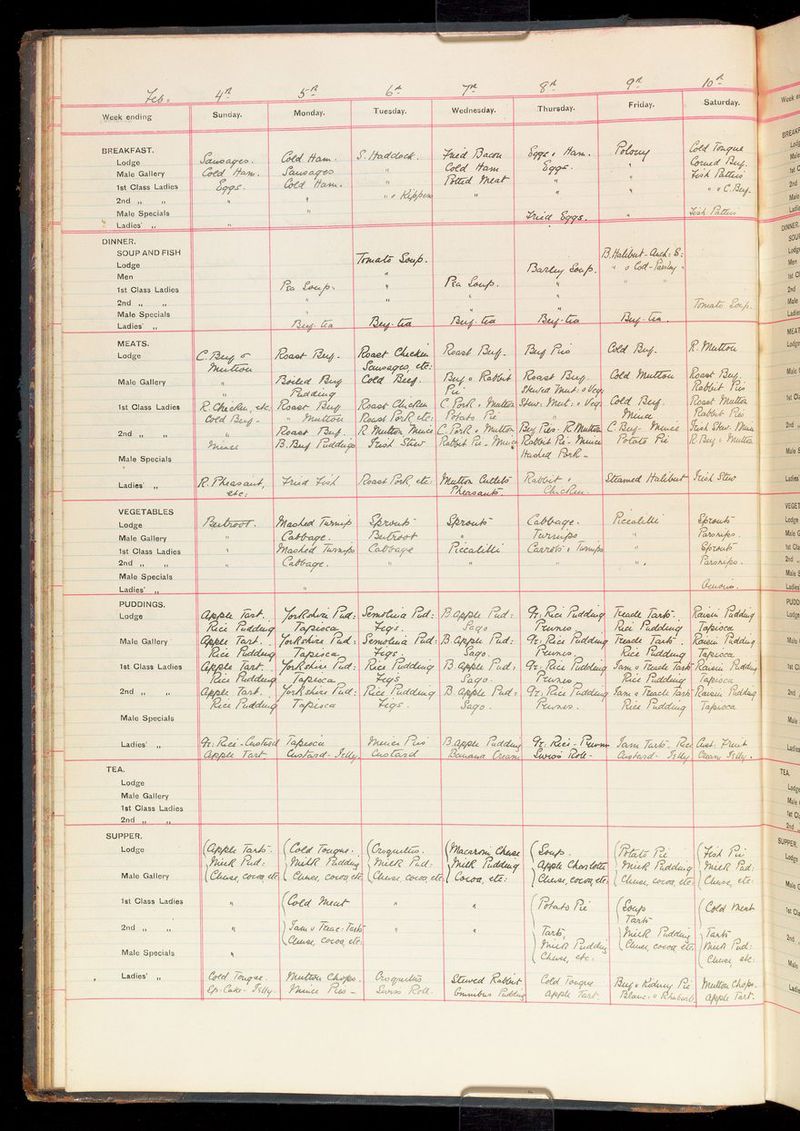 Feb. 4th 5th 6th 7th 8th 9th 10th
Week ending Sunday. Monday. Tuesday. Wednesday. Thursday. Friday. Saturday.
BREAKFAST.
Lodge Sausages. Cold Ham. S. Haddock. Fried Bacon Eggs & Ham. Polony Cold Tongue
Male Gallery Cold Ham. Sausages " Cold Ham Eggs. " Corned Beef.
1st Class Ladies Eggs. Cold Ham. " Potted Meat " " Fish Patties
2nd " " " " " & Kippers " " " " & C. Beef.
Male Specials " Fried Eggs. " Fish Patties
Ladies' " "
DINNER.
SOUP AND FISH Tomato Soup. B. Halibut - Anch: S:
Lodge Barley Soup. " & Cod - Parsley "
Men "
1st Class Ladies Pea Soup. " Pea Soup. " "
2nd " " " " " " Tomato Soup.
Male Specials
Ladies' " Beef-tea Beef-tea Beef-tea Beef-tea Beef-tea
MEATS.
Lodge C. Beef & Roast Beef. Roast Chicken Roast Beef. Beef Pies Cold Beef. R. Mutton
Mutton Sausages, etc:
Male Gallery " Boiled Beef Cold Beef. Beef & Rabbit Roast Beef Cold Mutton Roast Beef.
Pudding Pie. Stewed Mut: & Veg: Rabbit Pie
1st Class Ladies R. Chicken, etc. Roast Beef Roast Chicken C. Pork & Mutton Stew: Mut: & Veg: Cold Beef. Roast Mutton
Cold Beef. " Mutton Roast Pork etc: Potato Pie " Mince Rabbit Pie
2nd " " " Roast Beef. R. Mutton Mince C. Pork & Mutton Beef Pies. R. Mutton C. Beef. Mince Irish Stew. Mince
Mince B. Beef Puddings Irish Stew Rabbit Pie. Mince Rabbit Pie. Mince Potato Pie R. Beef & Mutton
Male Specials Hashed Pork.
Ladies' " R. Pheasant, Fried Fish Roast Pork, etc: Mutton Cutlets Rabbit & Steamed Halibut Irish Stew
etc: Pheasants. Chicken.
VEGETABLES
Lodge Beetroot. Mashed Turnips Sprouts Sprouts Cabbage. Piccalilli Sprouts
Male Gallery " Cabbage. Beetroot " Turnips " Parsnips.
1st Class Ladies " Mashed Turnips Cabbage Piccalilli Carrots & Turnips " Sprouts
2nd " " " Cabbage. " " " " Parsnips.
Male Specials
Ladies' " "
PUDDINGS.
Lodge Apple Tart. Yorkshire Pud: Semolina Pud: B. Apple Pud: Gr: Rice Pudding Treacle Tart. Raisin Pudding
Rice Pudding Tapioca Figs. Sago Prunes Rice Pudding Tapioca
Male Gallery Apple Tart. Yorkshire Pud: Semolina Pud: B. Apple Pud: Gr: Rice Pudding Treacle Tart. Raisin Pudding
Rice Pudding Tapioca Figs. Sago. Prunes. Rice Pudding Tapioca
1st Class Ladies Apple Tart. Yorkshire Pud: Rice Pudding B. Apple Pud: Gr: Rice Pudding Jam & Treacle Tart Raisin Pudding
Rice Pudding Tapioca Figs Sago. Prunes Rice Pudding Tapioca
2nd " " Apple Tart. Yorkshire Pud: Rice Pudding B. Apple Pud: Gr: Rice Pudding Jam & Treacle Tart Raisin Pudding
Rice Pudding Tapioca Figs. Sago. Prunes. Rice Pudding Tapioca
Male Specials
Ladies' " Gr: Rice. Custard Tapioca Mince Pies B. Apple Pudding Gr. Rice. Prunes Jam Tart. Rice Cust: Fruit
Apple Tart Custard. Jelly Custard Banana Cream Swiss Roll. Custard. Jelly Cream Jelly.
TEA.
Lodge
Male Gallery
1st Class Ladies
2nd " "
SUPPER.
Lodge Apple Tart. Cold Tongue. Croquettes. Macaroni Cheese Soup. Potato Pie Fish Pie
Milk Pud: Milk Pudding Milk Pud: Milk Pudding Apple Charlotte Milk Pudding Milk Pud:
Male Gallery Cheese, cocoa, etc Cheese, cocoa, etc Cheese, cocoa, etc Cocoa, etc: Cheese, cocoa, etc: Cheese, cocoa, etc: Cheese, etc:
1st Class Ladies " Cold Meat " " Potato Pie Soup Cold Meat
Tart
2nd " " " Jam & Treac: Tart " " Tart, Milk Pudding Tart
Cheese, Cocoa, etc: Milk Pudding Cheese, cocoa, etc: Milk Pud:
Male Specials " Cheese, etc. Cheese, etc:
Ladies' " Cold Tongue. Mutton Chops. Croquettes Stewed Rabbit Cold Tongue Beef & Kidney Pie Mutton Chops.
Sp: Cake. Jelly. Mince Pies. Swiss Roll. Omnibus Pudding Apple Tart. Blanc. & Rhubarb Apple Tart.